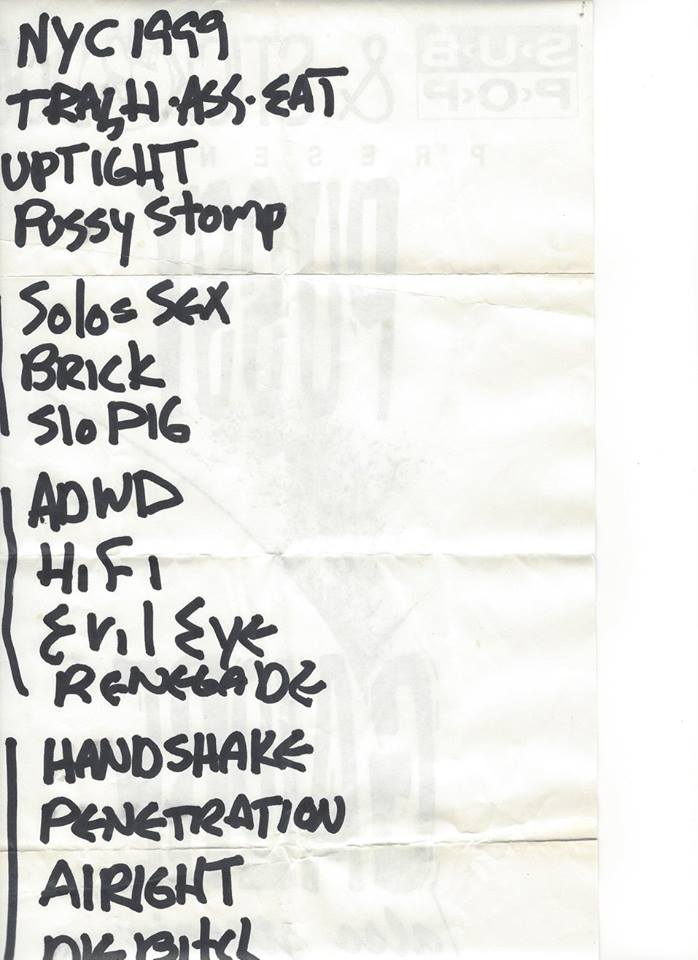 NYC 1999
TRASH·ASS·EAT
UPTIGHT
PUSSY Stomp
Solo= SEX
BRICK
Slo PIG
ADWD
HiFi
Evil Eye
RENEGADE
HANDSHAKE
PENETRATION
AIRIGHT
DIE BItch
S·U·B
P·O·P
&
P R E S E N
PUSSY
also